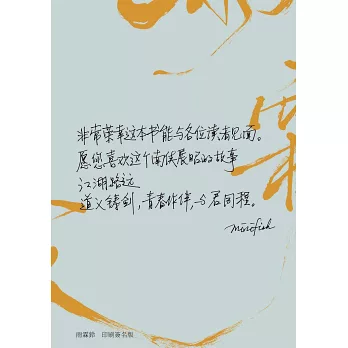 非常荣幸这本书能与各位读者见面。
愿您喜欢这个南侠展昭的故事
江湖路远
道义铸剑，青春作伴，与君同程。
minifish
雨霖鈴 印刷簽名版